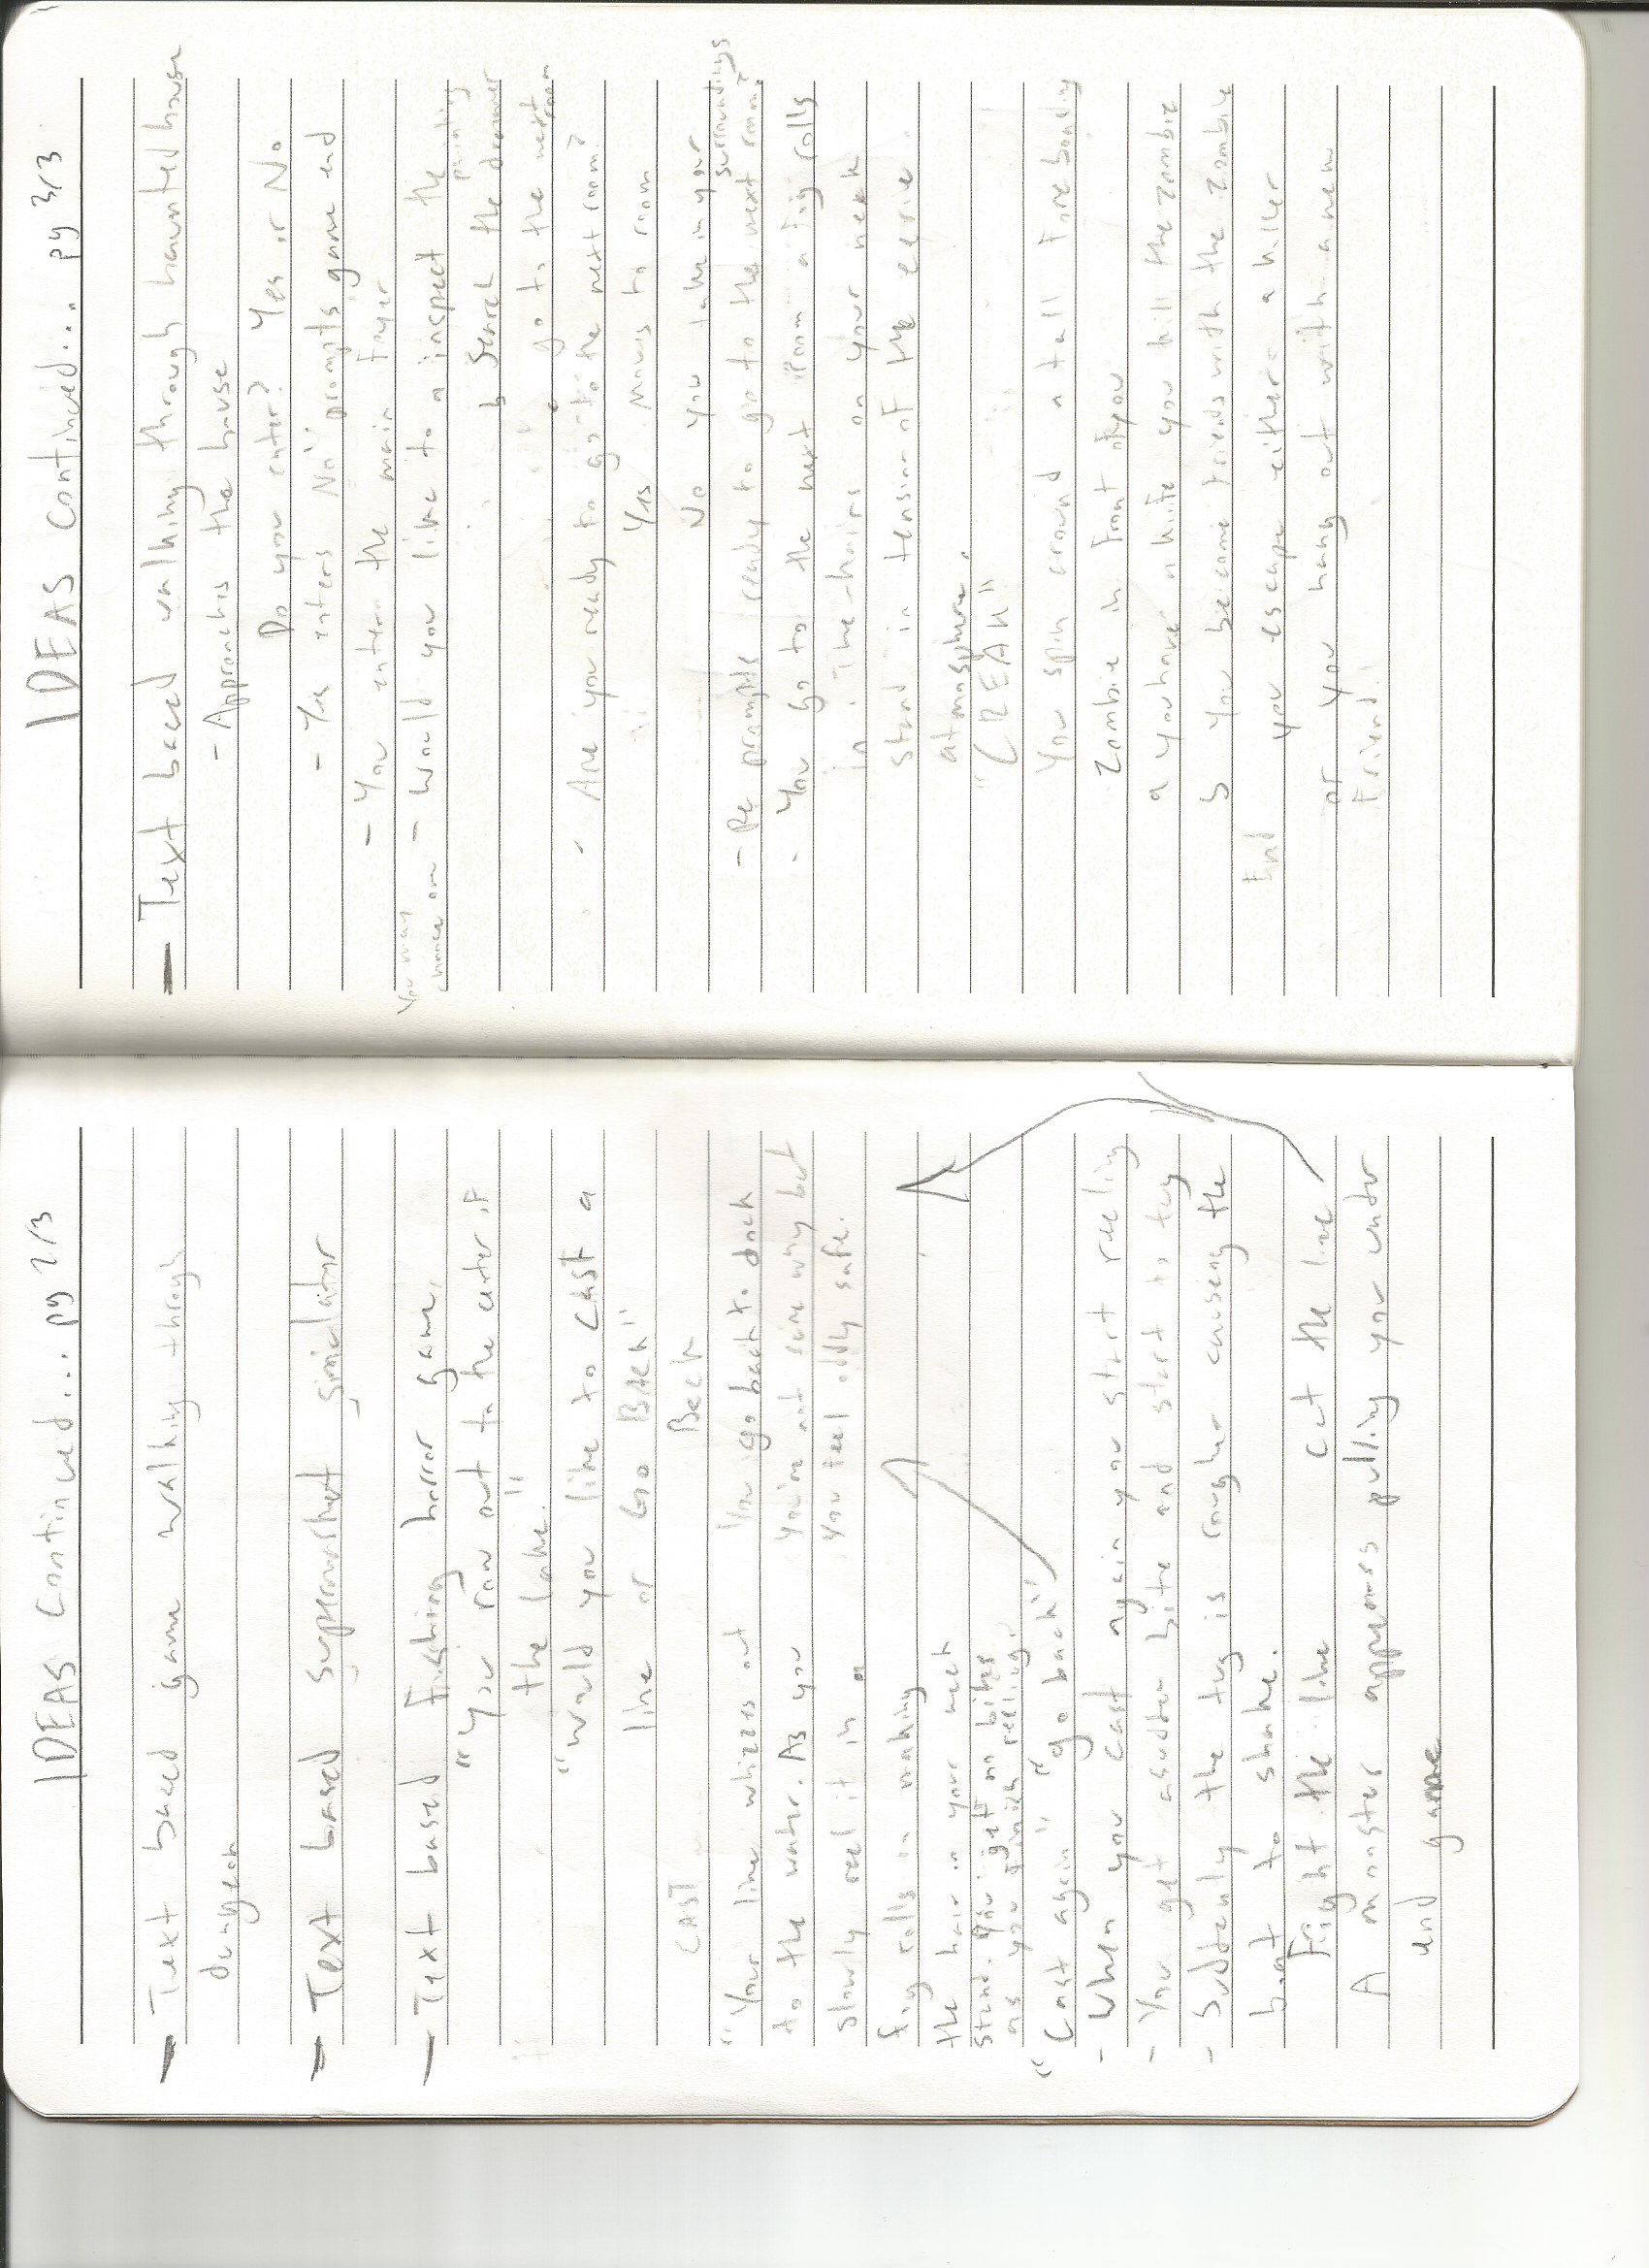 IDEAS Continued... pg 2/3
- Text based game walking through
dungeon
- Text based supermarket simulator
- Text based Fishing horror game.
"You row out to the center of
the lake."
"would you like to CAST a
line or Go BACK"
CAST Back
"Your line whizzes out
to the water. As you
slowly reel it in
fog rolls in making
the hair in your neck
stand. You get no bites
as you finish reeling.
You go back to dock
You're not sure why but
you feel oddly safe.
"Cast again" "go back"
- When you cast again you start reeling
- You get a sudden bite and start to tug
- Suddenly the tug is rougher causeing the
boat to shake.
Fight the line Cut the line
A monster appears pulling you under
end game
IDEAS Continued... pg 3/3
- Text based walking through haunted house
- Approaches the house
Do you enter? Yes or No
- Yes enters No prompts game end
- You enter the main foyer
You may
choose one - would you like to a inspect the
painting
b Search the drawer
c go to the next room
- Are you ready to go to the next room?
Yes moves to room
No you take in your
surroundings
- Re prompts ready to go to the next room?
- You Go to the next room a fog rolls
in. The hairs on your neck
stand in tension of the eerie
atmosphere.
"CREAK"
You spin around a tall foreboading
Zombie in front of you
a you have a knife you kill the zombie
b You become friends with the zombie
End you escape either a killer
or you hang out with a new
friend.